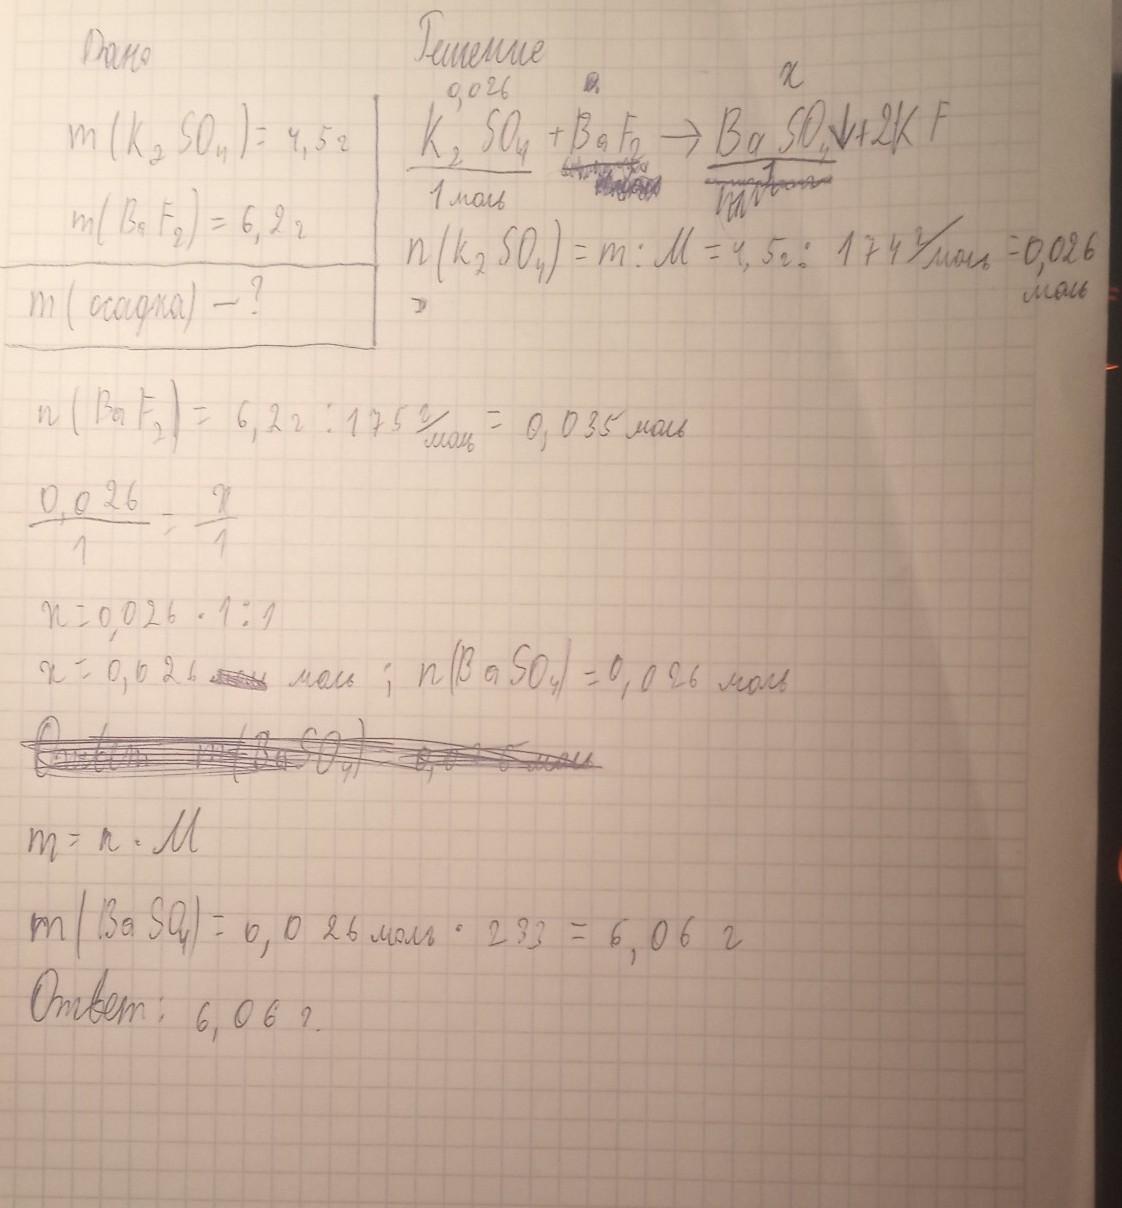 Дано
m(K₂SO₄) = 4,5 г
m(BaF₂) = 6,2 г
m(осадка) – ?
Решение
0,026 x
K₂SO₄ + BaF₂ → BaSO₄↓ + 2KF
1 моль
n(K₂SO₄) = m : M = 4,5 г : 174 г/моль = 0,026
моль
n(BaF₂) = 6,2 г : 175 г/моль = 0,035 моль
0,026/1 = x/1
x = 0,026 · 1 : 1
x = 0,026 моль ; n(BaSO₄) = 0,026 моль
m = n · M
m(BaSO₄) = 0,026 моль · 233 = 6,06 г
Ответ: 6,06 г.